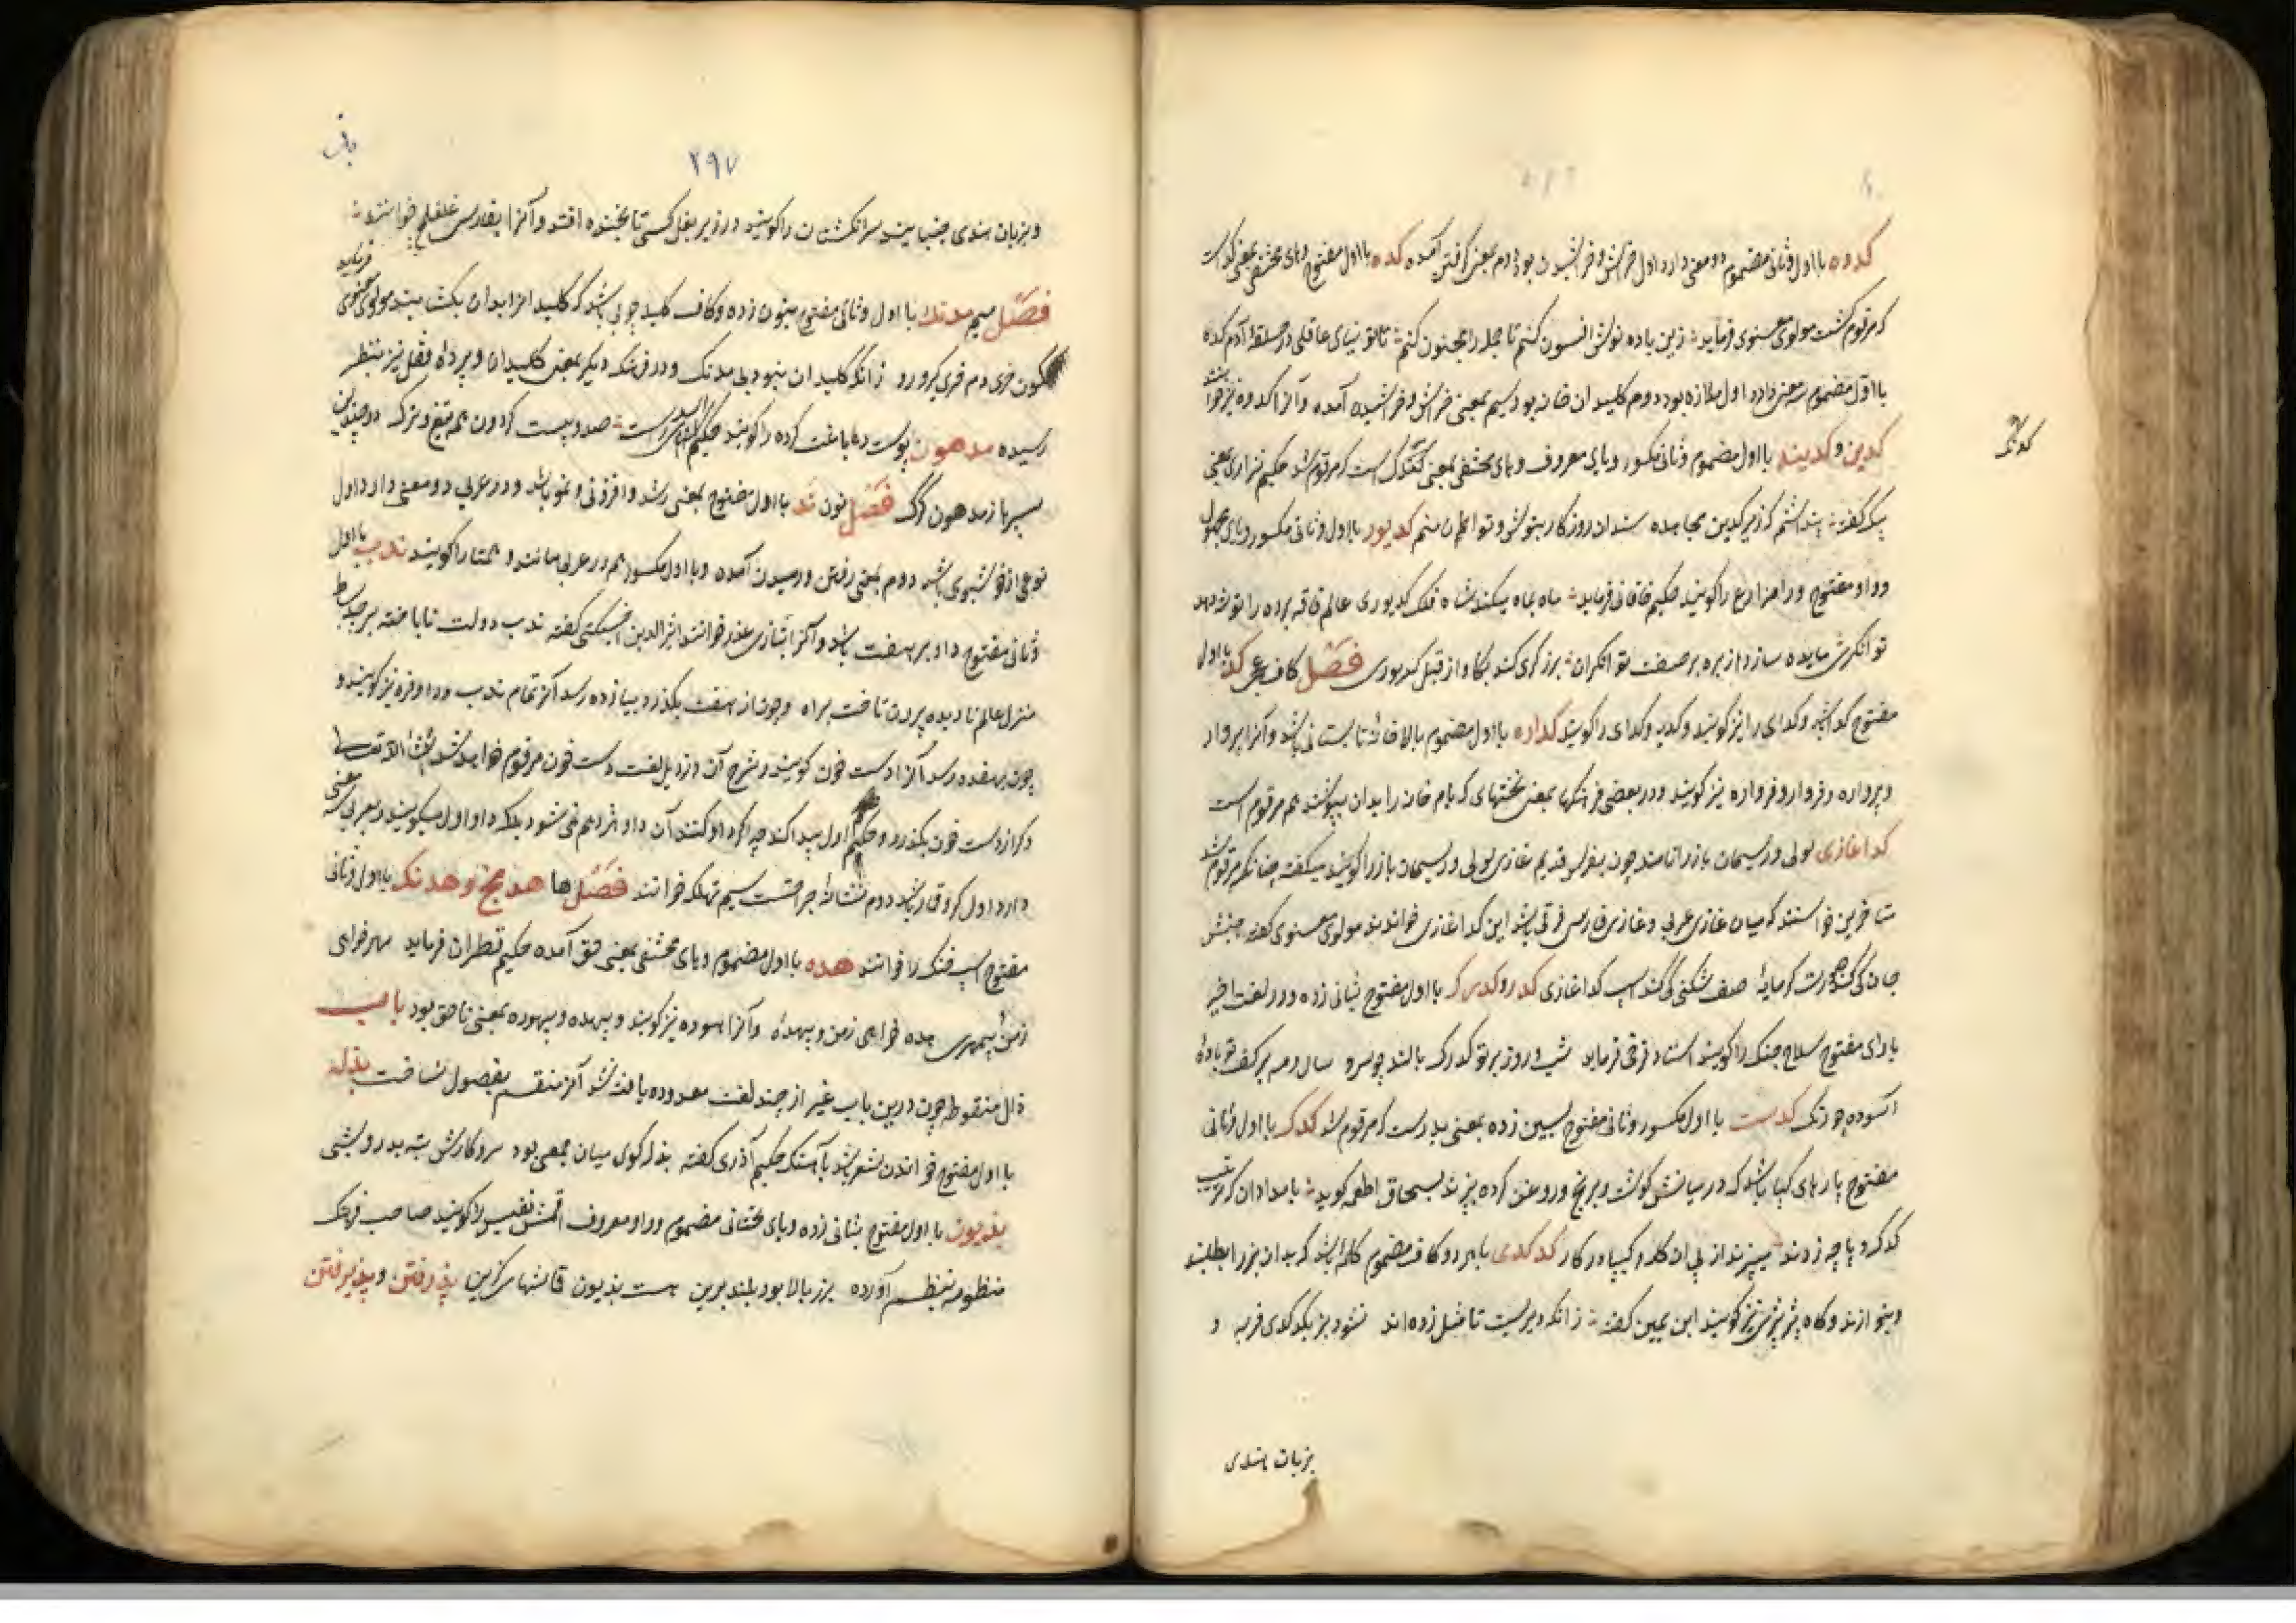 کدوه بااول و ثانی مضموم دو معنی دارد اول خراش و خراشیدن بود دوم بمعنی گرفتن آمده کده بااول مفتوح و های مختفی بمعنی کد است
که مرقوم گشت مولوی معنوی فرماید زین باده نوش افسون کنم تا جمله را مجنون کنم تا تو نیابی عاقلی در حلقه آدم کده
بااول مضموم سه معنی دارد اول ملازه بود دوم کلیدان خانه بود سیم بمعنی خراش و خراشیده آمده و آنرا کدوه نیز خوانند
کدین و کدینه بااول مضموم و ثانی مکسور و یای معروف و های مختفی بمعنی کتنگ است که مرقوم شد حکیم نزاری
کدنگ
گفته پنداشتم که زیر کدین مجاهده سندان روزگار بتوش و توا منم کدیور بااول و ثانی مکسور و یای مجهول
و واو مفتوح و را مزارع را گویند حکیم خاقانی فرماید ماه بماه میکند شاه فلک کدیوری عالم فاقه برده را توشه دهد
توانگرش مایده سازد از بره بر صفت توانگران برزگری کند بگاو از قبل کدیوری فصل کاف عجمی کد بااول
مفتوح گدا باشد و گدای را نیز گویند و کدیه و گدای را گویند کداره بااول مضموم بالاخانه تابستانی باشد و آنرا پروار
و پرواره و فروار و فرواره نیز گویند و در بعضی فرهنگها بمعنی تختهای که بام خانه را بدان بپوشند هم مرقوم است
کداغازی لولی و ریسمان باز را نامند چون بفرس قدیم غازی لولی و ریسمان باز را گویند میگفته چنانکه مرقوم شد
متاخرین خواستند که میان غازی عربی و غازی فارسی فرقی باشد این کداغازی خواندند مولوی معنوی گفته جنبش
جان کی کند صورت گرمابه صف شکنی کی کند اسب کداغازی کدر و کدرک بااول مفتوح بثانی زده و در لغت اخیر
با رای مفتوح سلاح جنگ را گویند استاد فرخی فرماید شب و روز بر تو کدرک بالند چو سرو سال و مه بر کف تو باده
آسوده چو زنگ کدست بااول مکسور و ثانی مفتوح بسین زده بمعنی بدست که مرقوم شد کدک بااول و ثانی
مفتوح پارهای کیپا باشد که در میانش گوشت و برنج و روغن کرده پزند بسحاق اطعمه گوید بامدادان که مرتب
کدک و پاچه زدند میپزند از پی آن کله و کیپا در کار کدکدی با هر دو کاف مضموم کلمه باشد که بدان بز را بطلبند
و بنوازند و گاه پژپژش نیز گویند ابن یمین گفته زانکه دیریست تا مثل زده‌اند نشود بز بکدکدی فربه و
بزبان هندی
۲۹۷
و بزبان هندی جنبانیدن سر انگشتان را گویند در زیر بغل کسی تا بخنده افتد و آنرا بفارسی غلغلیچ خوانند
فصل میم مدنک بااول و ثانی مفتوح بنون زده و کاف کلید چوبی باشد که کلیدانرا بدان بگشایند مولوی معنوی فرماید
کون خری دم خری گیر و رو زانکه کلیدان نبود بی مدنگ و در فرهنگ دیگر بمعنی کلیدان و پرده قفل نیز بنظر
رسیده مدهون پوست دباغت کرده را گویند حکیم صد و بیست گردون همه تیغ و ترگ دو چندین
سپرها ز مدهون گرگ فصل نون ند بااول مفتوح بمعنی رشد و افزونی و نمو باشد و در عربی دو معنی دارد اول
نوعی از خوشبوی باشد دوم بمعنی رفتن و رمیدن آمده و بااول مکسور هم در عربی مانند و همتا را گویند ندب بااول
و ثانی مفتوح داو بر هفت باشد و آنرا بتازی عذر خوانند اثیرالدین اخسیکتی گفته ندب دولت نایافته بر بسط
منزل عالم نادیده برون تاخت براه و چون از هفت بگذرد و بیازده رسد آنرا تمام ندب و داو فره نیز گویند و
چون بهفده رسد آنرا دست خون گویند و شرح آن در ذیل لغت دست خون مرقوم خواهد شد
و گر از دست خون بگذرد حکم اول پیدا کند چه اگر داو کنند آن داو اثر دهم نمی شود بلکه داو اول میگویند و بعربی سه معنی
دارد اول گرو قمار باشد دوم نشانه جراحتست سیم تهلکه خوانند فصل ها هدمخ و هدنک بااول و ثانی
مفتوح اسب خنگ را خوانند هده بااول مضموم و های مختفی بمعنی حق آمده حکیم قطران فرماید مهر خواهی
زمن بیمهری هده خواهی زمن و بیهده و آنرا هوده نیز گویند و بیهده و بیهوده بمعنی ناحق بود باب
ذال منقوطه چون درین باب غیر از چند لغت معدوده یافته نشد آنرا منقسم بفصول نساخت بذله
بااول مفتوح خواندن شعر باشد بآهنگ حکیم آذری گفته بذله گوی میان جمعی بود سروکارش بته بدرویشی
بذیون بااول مفتوح بثانی زده و یای تحتانی مضموم و واو معروف قماش نفیس را گویند صاحب فرهنگ
منظومه بنظم آورده برز بالا بود بلند برین هست بذیون قماشها گزین پذرفتن و پذیرفتن